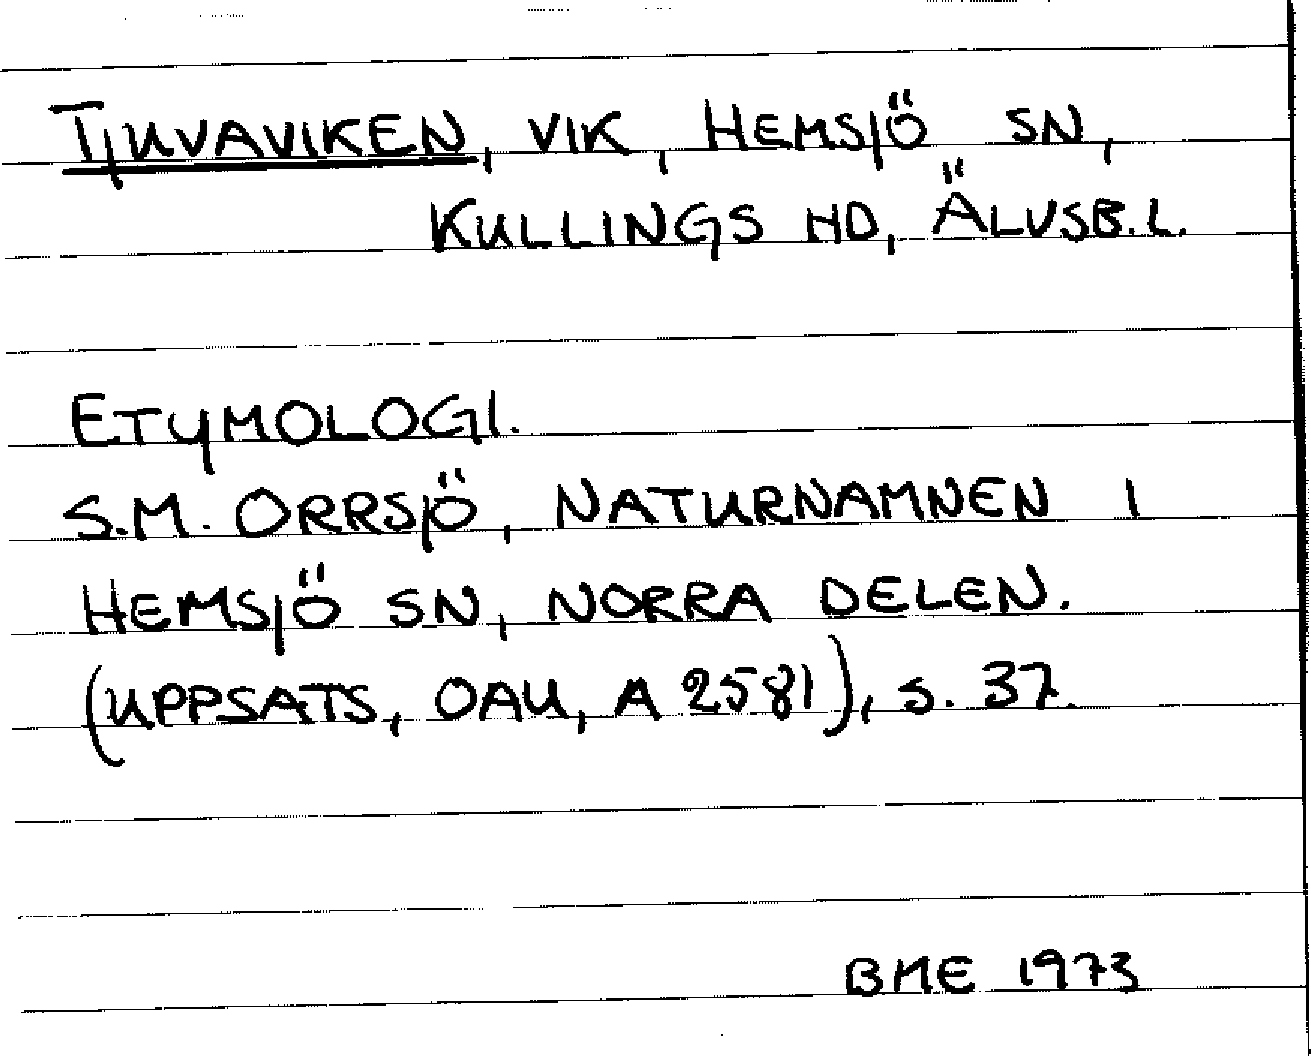 TJUVAVIKEN, VIK, HEMSJÖ SN,
KULLINGS HD, ÄLVSB. L.
ETYMOLOGI.
S.M. ORRSJÖ, NATURNAMNEN I
HEMSJÖ SN, NORRA DELEN.
(UPPSATS, OAU, A 2581), S. 37.
BME 1973